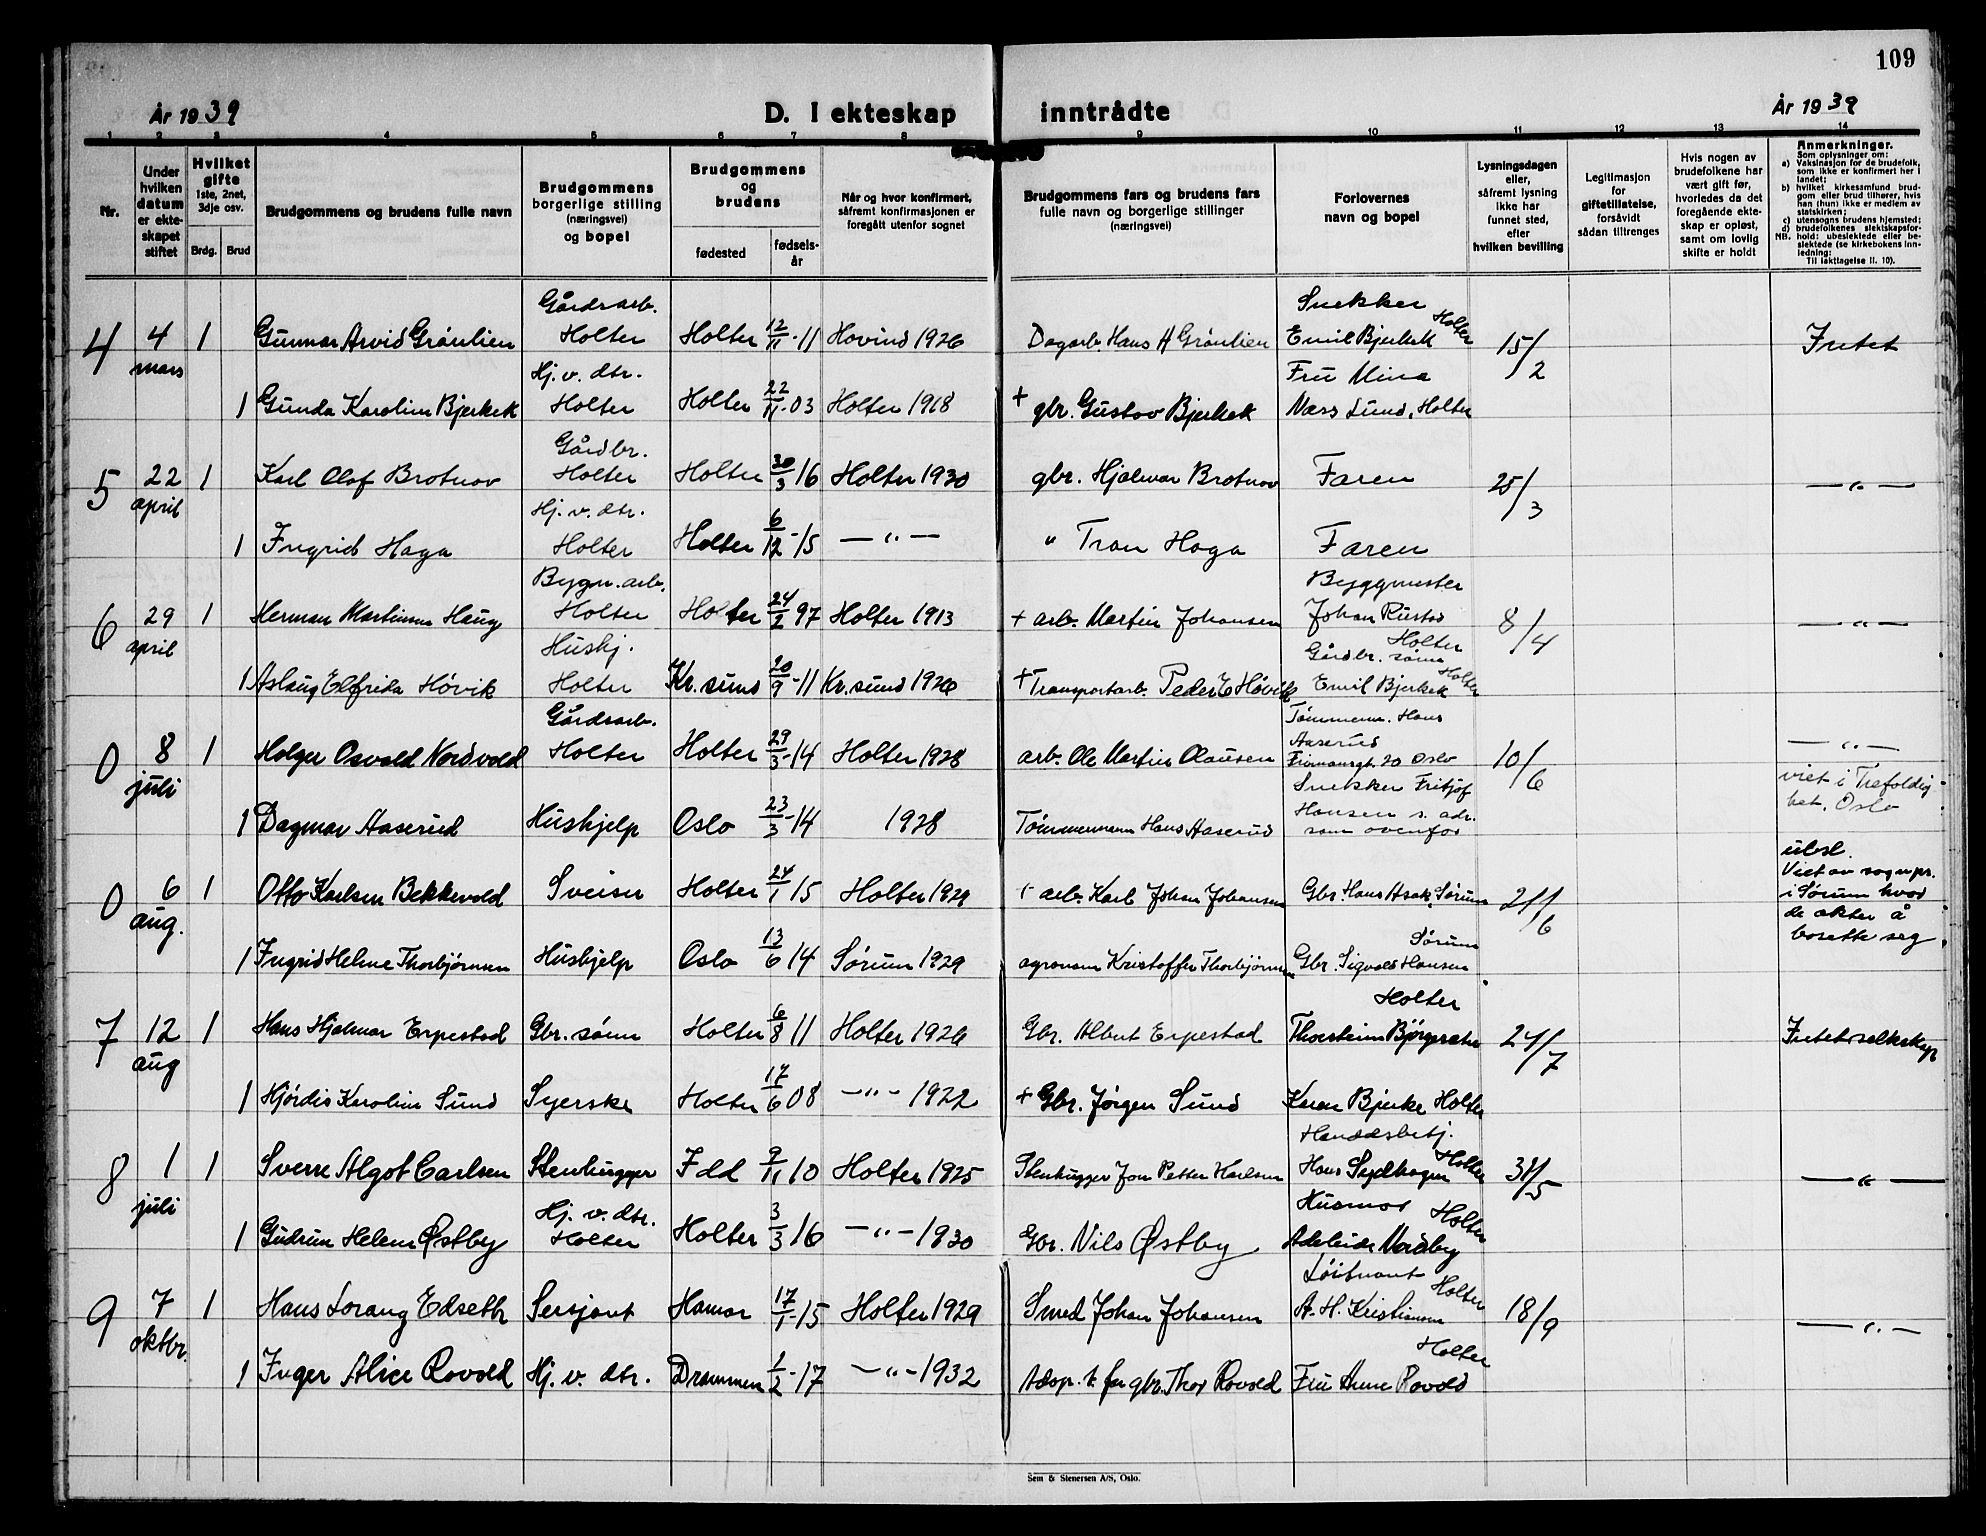 109
År 1939 D. I ekteskap inntrådte År 1939
1 2 3 4 5 6 7 8 9 10 11 12 13 14
Nr.
Under hvilken datum er ekteskapet stiftet
Hvilket gifte 1ste, 2net, 3dje osv.
Brdg. Brud
Brudgommens og brudens fulle navn
Brudgommens borgerlige stilling (næringsvei) og bopel
Brudgommens og brudens
fødested fødselsår
Når og hvor konfirmert, såfremt konfirmasjonen er foregått utenfor sognet
Brudgommens fars og brudens fars fulle navn og borgerlige stillinger (næringsvei)
Forlovernes navn og bopel
Lysningsdagen eller, såfremt lysning ikke har funnet sted, efter hvilken bevilling
Legitimasjon for giftetillatelse, forsåvidt sådan tiltrenges
Hvis nogen av brudefolkene har vært gift før, hvorledes da det foregående ekteskap er opløst, samt om lovlig skifte er holdt
Anmerkninger.
Som oplysninger om:
a) Vaksinasjon for de brudefolk, som ikke er konfirmert her i landet;
b) hvilket kirkesamfund brudgom eller brud tilhører, hvis han (hun) ikke er medlem av statskirken;
c) utensogns brudens hjemsted;
d) brudefolkenes slektskapsforhold: ubeslektede eller beslektede (se kirkebokens innledning:
NB. Til iakttagelse II. 10).
4 4 mars 1 Gunnar Arvid Grønlien Gårdsarb. Holter Holter 12/11-11 Hovind 1926 Dagarb. Hans A Grønlien Snekker Emil Bjerkek Holter 15/2 Intet
1 Gunda Karoline Bjerkek Hj. v. dtr. Holter Holter 22/11-03 Holter 1918 + gbr. Gustav Bjerkek Fru Mina Næss Lund, Holter
5 22 april 1 Karl Olof Brotnov Gårdbr. Holter Holter 30/3 16 Holter 1930 gbr. Hjalmar Brotnov Faren 25/3 — " —
1 Ingrid Haga Hj. v. dtr. Holter Holter 6/12-15 — " — " Tron Haga Faren
6 29 april 1 Herman Martinius Haug Bygn. arb. Holter Holter 24/2 97 Holter 1913 + arb. Martin Johansen Byggmester Johan Rustad Holter 8/4 — " —
1 Aslaug Elfrida Høvik Hushj. Holter Kr.sund 20/9-11 Kr.sund 1926 + Transportarb. Peder E Høvik Gårdbr. sønn Emil Bjerkek Holter
0 8 juli 1 Holger Osvald Nordvold Gårdsarb. Holter Holter 29/3-14 Holter 1928 arb. Ole Martin Olausen Tømmerm. Hans Aaserud 20 Oslo 10/6 — " —
viet i Trefoldighet, Oslo
1 Dagmar Aaserud Hushjelp Oslo 23/3-14 1928 Tømmermann Hans Aaserud Snekker Fritjof Hansen s. adr. som ovenfor
0 6 aug. 1 Otto Karlsen Bekkevold Sveiser Holter 24/1 15 Holter 1929 + arb. Karl Johan Johansen Gbr. Hans Asak, Sørum 21/6 ubsl. Viet av sognepr. i Sørum hvor de akter å bosette seg.
1 Ingrid Helene Thorbjørnsen Hushjelp Oslo 13/6 14 Sørum 1929 agronom Kristoffer Thorbjørnsen Gbr. Sigvald Hansen Sørum
7 12 aug 1 Hans Hjalmar Erpestad Gbr. sønn Holter 6/8 11 Holter 1926 Gbr. Albert Erpestad Thorstein Holter 24/7 Intet slektskap
1 Hjørdis Karoline Sund Syerske Holter 17/6 08 — " — 1922 + Gbr. Jørgen Sund Karen Bjerke Holter
8 1 juli 1 Sverre Algot Carlsen Stenhugger Fdd 9/11 10 Holter 1925 Stenhugger Jon Petter Karlsen Handelsbetj. Hans Holter 31/5 — " —
1 Gudrun Helene Østby Hj. v. dtr. Holter Holter 3/3 16 — " — 1930 Gbr. Nils Østby Husmor Adeleide Nordby Holter
9 7 oktbr. 1 Hans Lorang Edseth Sersjant Hamar 17/1-15 Holter 1929 Smed Johan Johansen Løitnant A. H. Kristiansen Holter 18/9 — " —
1 Inger Alice Rovold Hj. v. dtr. Drammen 1/2-17 — " — 1932 Adop. t. far gbr. Thor Rovold Fru Anne Rovold Holter
Sem & Stenersen A/S, Oslo.